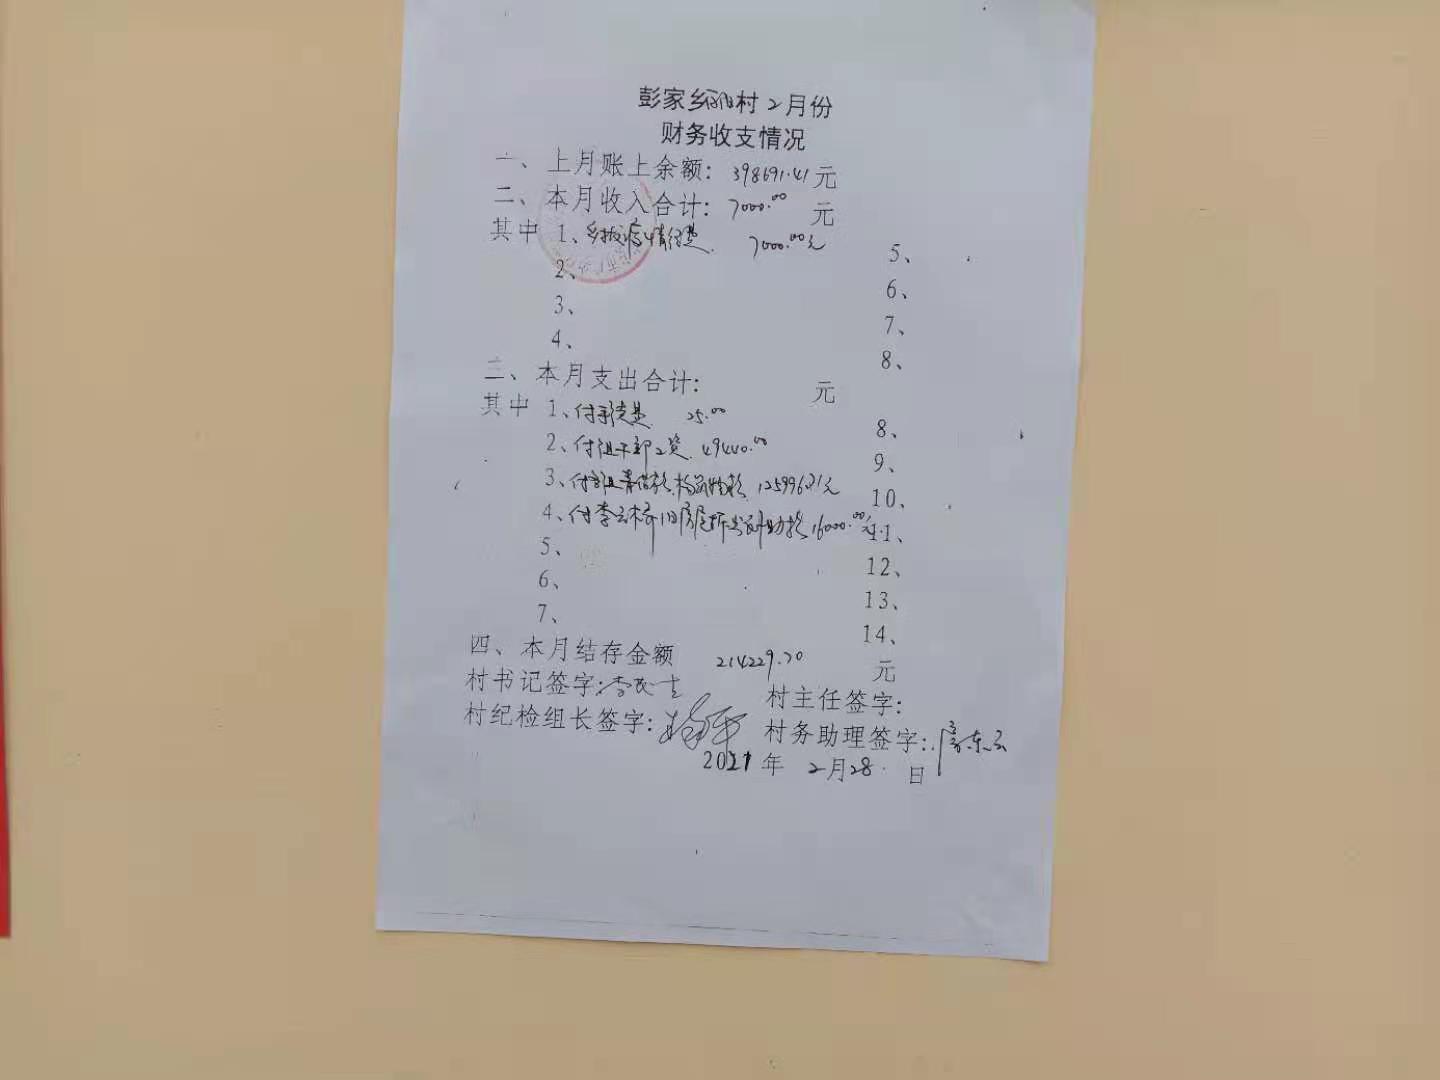 彭家乡村2月份
财务收支情况
一、上月账上余额：398691.41元
二、本月收入合计：7000.00 元
其中 1、乡拨疫情经费 7000.00元
2、
3、
4、
5、
6、
7、
8、
三、本月支出合计： 元
其中 1、付手续费 25.00
2、付组干部工资 49440.00
3、付款 125996.71元
4、付李云桥旧房屋拆补助款 16000.00元
5、
6、
7、
8、
9、
10、
11、
12、
13、
14、
四、本月结存金额 214229.70 元
村书记签字： 村主任签字：
村纪检组长签字： 村务助理签字：
2021年 2月28 日